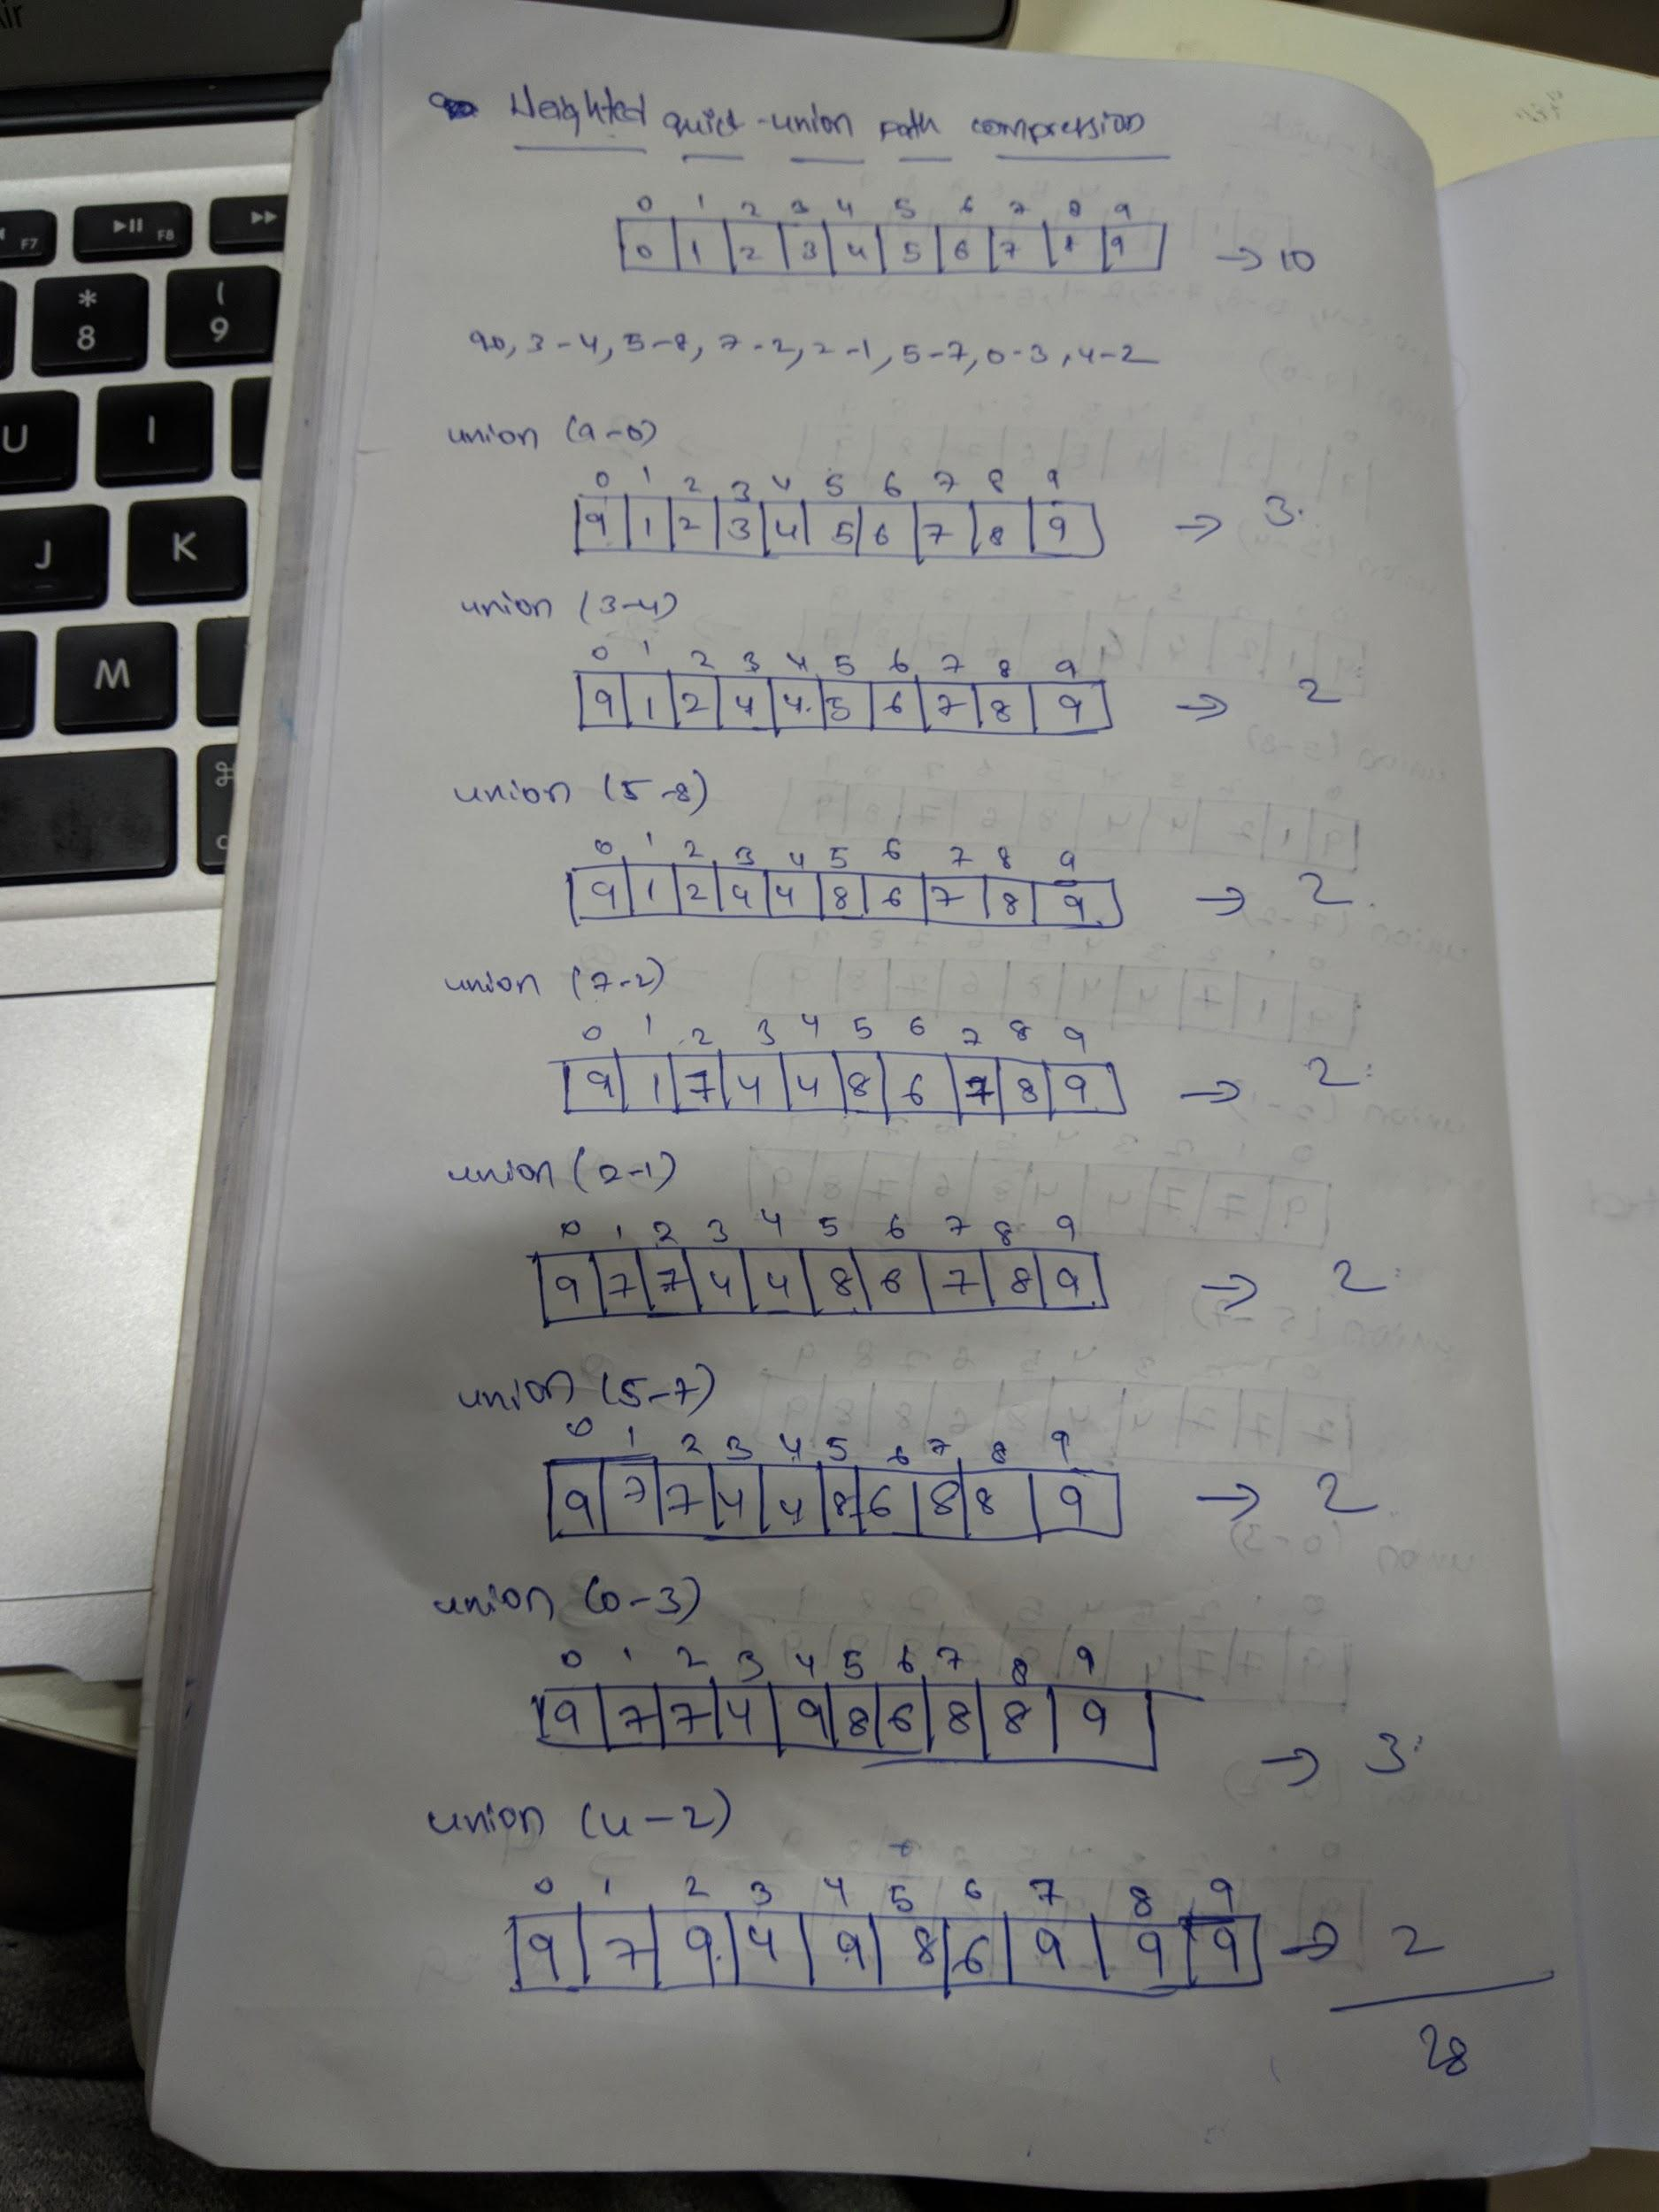 Air
F7
F8
* 8
( 9
U
I
J
K
M
⌘
Weighted quick-union path compression
0 1 2 3 4 5 6 7 8 9
0 1 2 3 4 5 6 7 8 9 → 10
90, 3-4, 5-8, 7-2, 2-1, 5-7, 0-3, 4-2
union (9-0)
0 1 2 3 4 5 6 7 8 9
9 1 2 3 4 5 6 7 8 9 → 3
union (3-4)
0 1 2 3 4 5 6 7 8 9
9 1 2 4 4 5 6 7 8 9 → 2
union (5-8)
0 1 2 3 4 5 6 7 8 9
9 1 2 4 4 8 6 7 8 9 → 2
union (7-2)
0 1 2 3 4 5 6 7 8 9
9 1 7 4 4 8 6 7 8 9 → 2
union (2-1)
0 1 2 3 4 5 6 7 8 9
9 7 7 4 4 8 6 7 8 9 → 2
union (5-7)
0 1 2 3 4 5 6 7 8 9
9 7 7 4 4 8 6 8 8 9 → 2
union (0-3)
0 1 2 3 4 5 6 7 8 9
9 7 7 4 9 8 6 8 8 9 → 3
union (4-2)
0 1 2 3 4 5 6 7 8 9
9 7 9 4 9 8 6 9 9 9 → 2
28